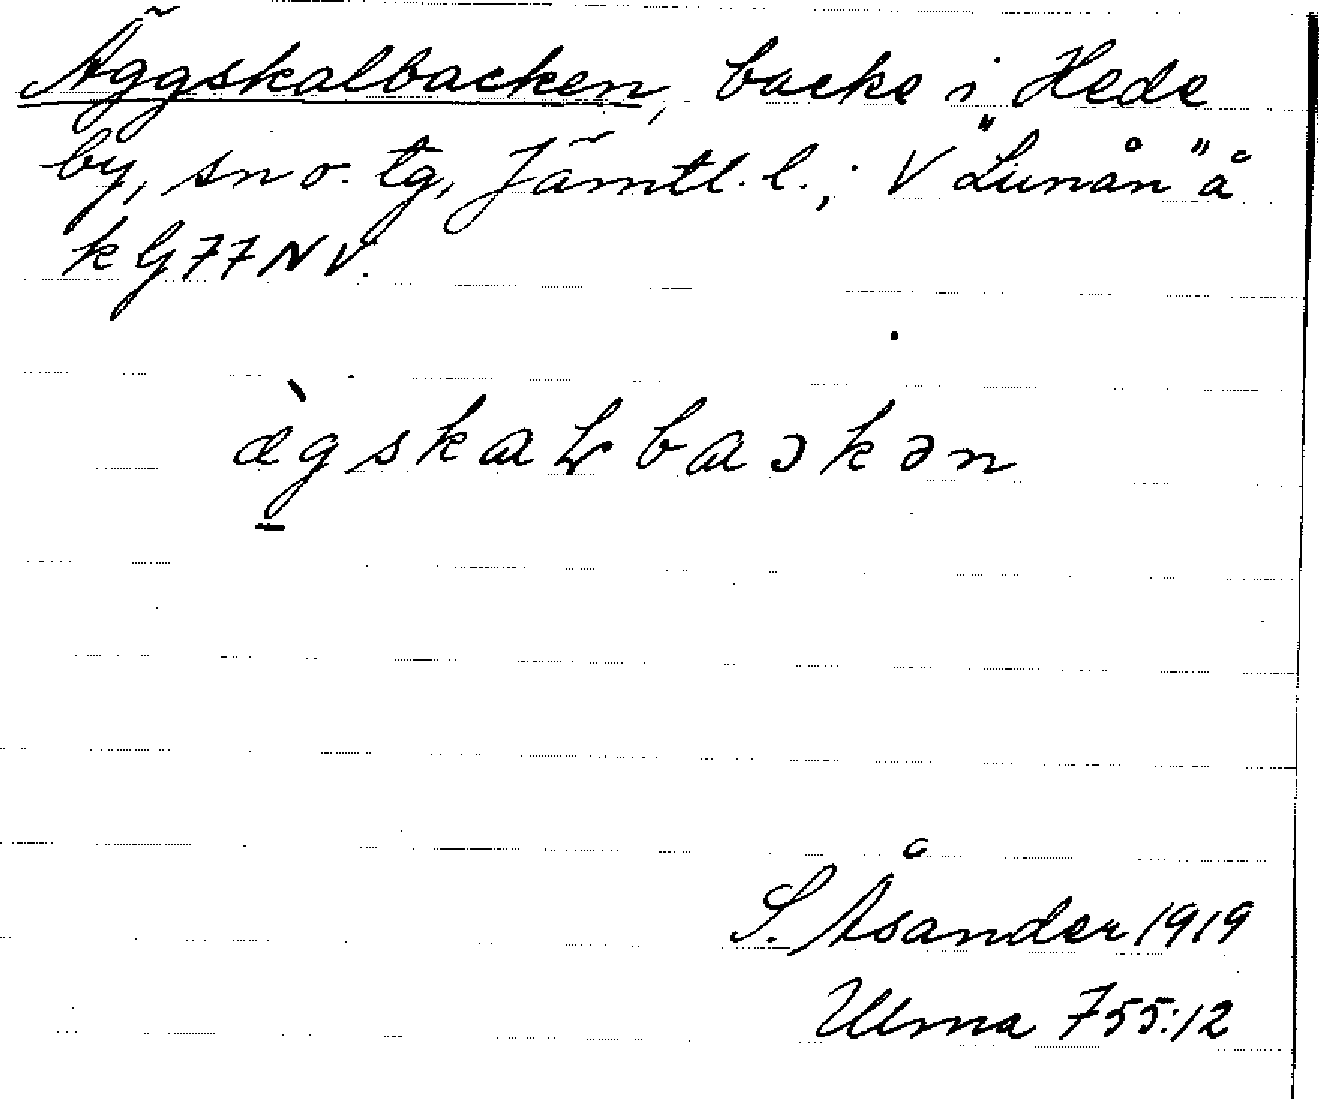 Äggskalbacken, backe i Hede
by, sn o. tg, Jämtl. l.; V "Lunån" å
k G77NV.
æ̀gskaɬbaɔkən
S. Åsander 1919
Ulma 755:12